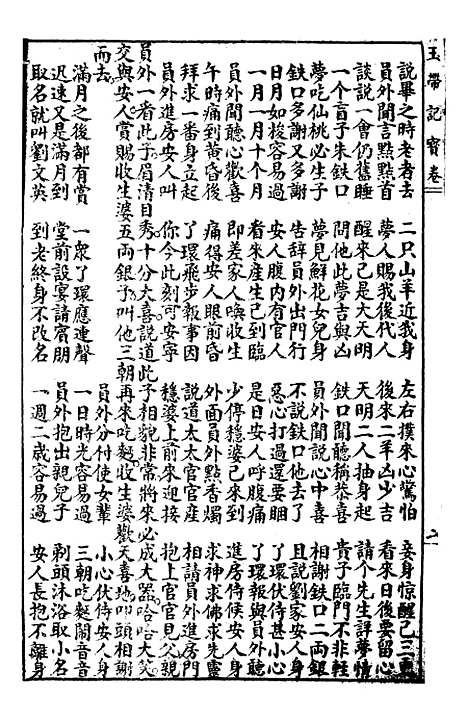 玉帶記寶卷 九
說畢之時老者去 二只山羊近我身 左右撲來心驚怕 妾身惊醒己三更
員外聞言點點首 夢人賜我後代人 後來二羊凶少吉 看來日後要留心
談說一會仍舊睡 醒來己是大天明 天明二人抽身起 請个先生詳夢情
一个盲子朱鉄口 問他此夢吉與凶 鉄口聞聽稱恭喜 貴子臨門不非輕
夢吃仙桃必生子 夢見鮮花女兒身 員外聞說心中喜 相謝鉄口二両銀
鉄口多謝又多謝 告辞員外出門行 不說鉄口他去了 且說劉家安人身
日月如梭容易過 安人腹内有官人 惡心打過還要睏 了環伏侍甚小心
一月一月十个月 看來産生己到臨 是日安人呼腹痛 了環報與員外聽
員外聞聽心歡喜 即差家人喚收生 少停穩婆己來到 進房侍候安人身
午時痛到黃昏後 痛得安人眼前昏 外面員外點香燭 求神求佛求先靈
拜求一番身立起 了環飛步報事因 說道太太官官産 相請員外進房門
員外進房安人叫 你今此刻可安寧 穩婆上前來迎接 抱上官官見父親
員外一看此子眉清目秀十分大喜說道此子相貌非常將來必成大器哈哈大笑
交與安人賞賜收生婆五両銀子叫他三朝再來吃麵收生婆歡天喜地叩頭相謝
而去。 員外分付使女輩 小心伏侍安人身
滿月之後都有賞 一衆了環應連聲 一日時光容易過 三朝吃麵鬧音音
迟速又是滿月到 堂前設宴請賓朋 員外抱出親兒子 剃頭沐浴取小名
取名就叫劉文英 到老終身不改名 一週二歲容易過 安人長抱不離身